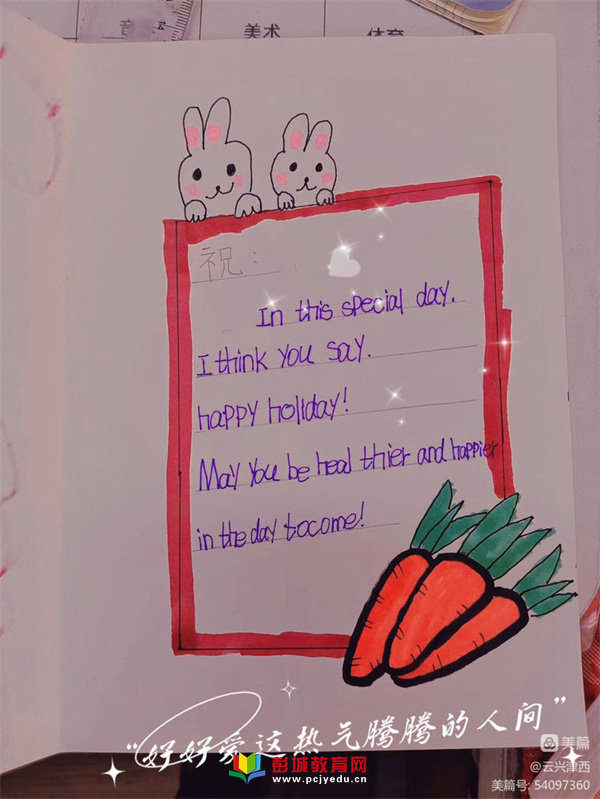 美术
体育
祝：
In this special day.
I think you say.
happy holiday!
May you be heal thier and happier
in the day to come!
“好好爱这热气腾腾的人间”
美篇
彭城教育网
@云兴津西
www.pcjyedu.cn
美篇号: 54097360